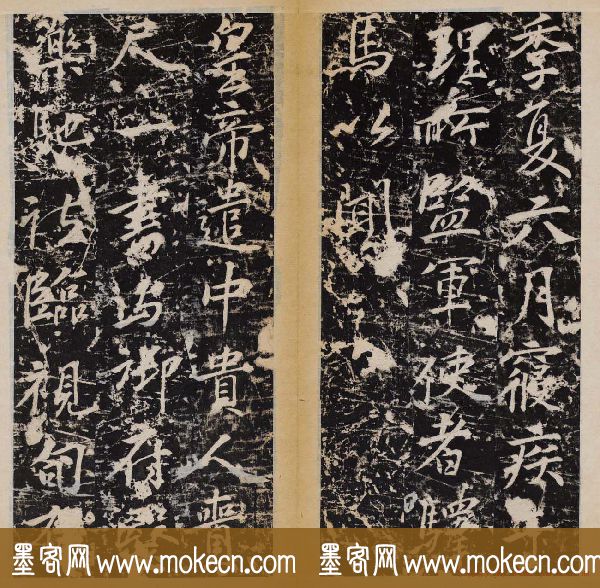 季夏六月寢疾于
理所監軍使者驛
馬以聞
皇帝遣中貴人賫
尺一書御府醫
藥馳往臨視旬
墨客网 www.mokecn.com 墨客网 www.mokecn.com